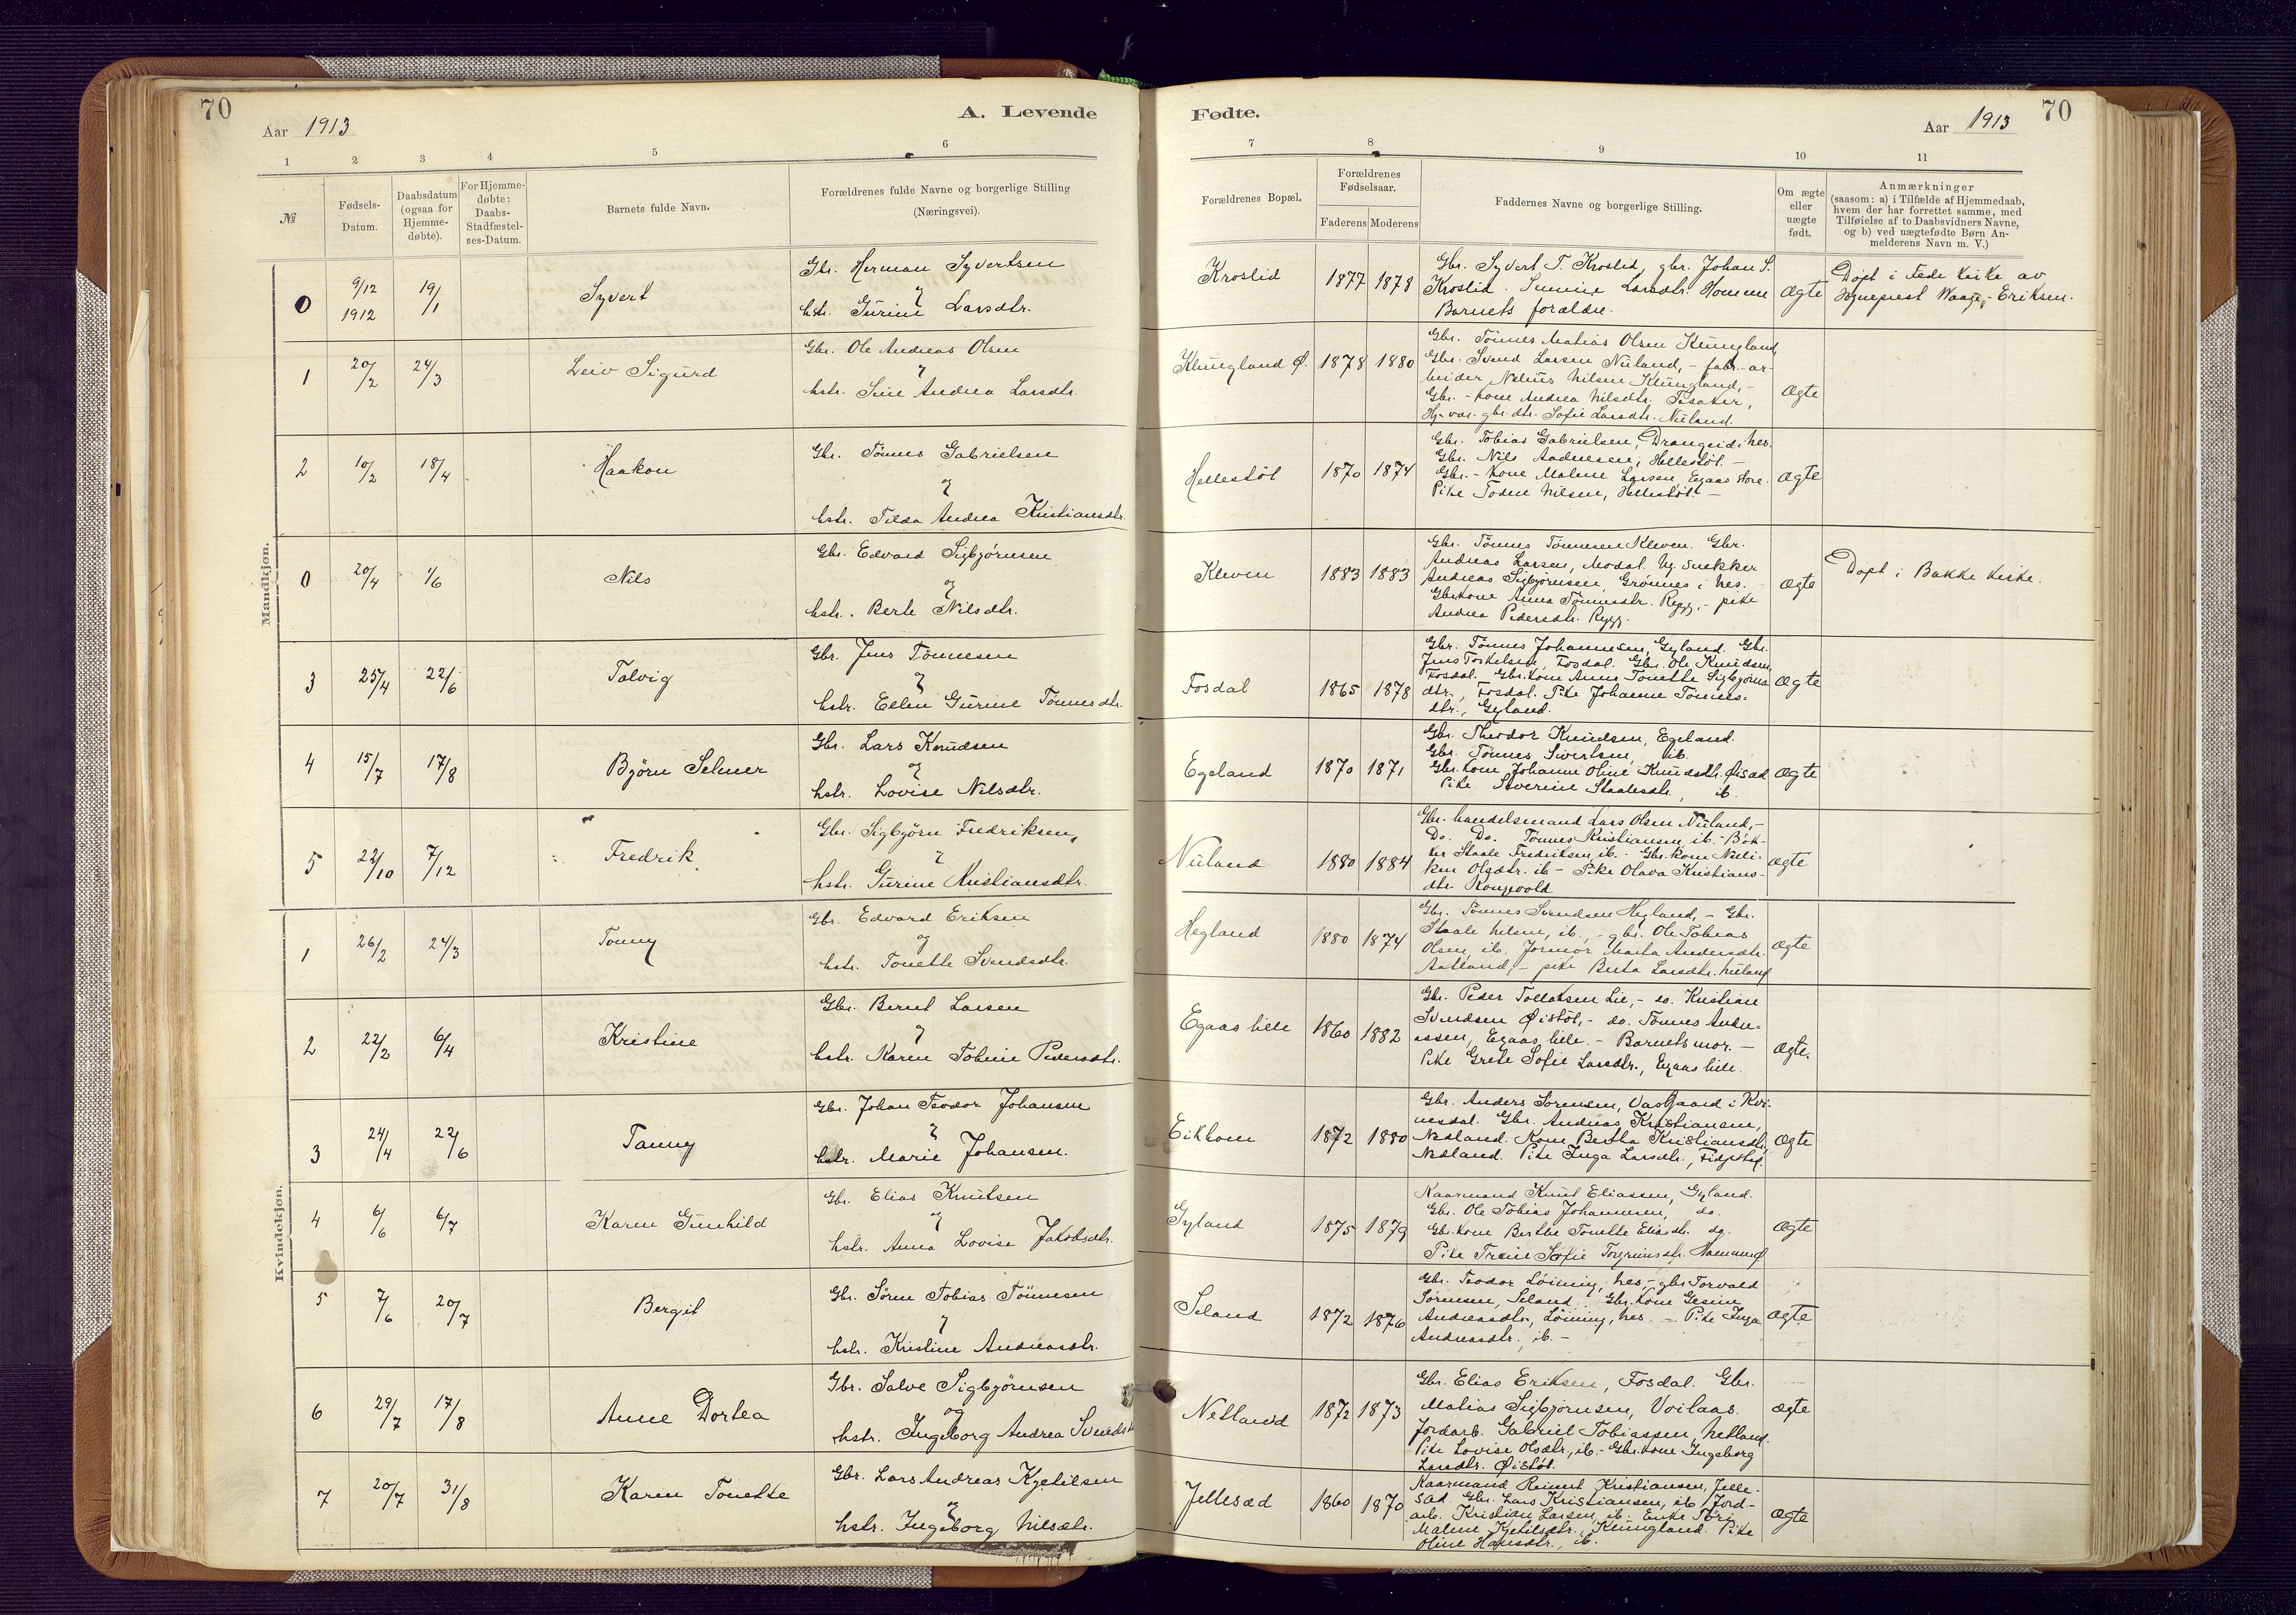 70
Aar 1913
A. Levende
Fødte.
Aar 1913
70
1 2 3 4 5 6
7 8 9 10 11
№
Fødsels-
Datum.
Daabsdatum
(ogsaa for
Hjemme-
døbte).
For Hjemme-
døbte:
Daabs-
Stadfæstel-
ses-Datum.
Barnets fulde Navn.
Forældrenes fulde Navne og borgerlige Stilling
(Næringsvei).
Forældrenes Bopæl.
Forældrenes
Fødselsaar.
Faderens
Moderens
Faddernes Navne og borgerlige Stilling.
Om ægte
eller
uægte
født.
Anmærkninger
(saasom: a) i Tilfælde af Hjemmedaab,
hvem der har forrettet samme, med
Tilføielse af to Daabsvidners Navne,
og b) ved uægtefødte Børn An-
melderens Navn m. V.)
Mandkjøn.
0
9/12
1912
19/1
Syvert
Gbr. Herman Syvertsen
og
hstr. Gurine Larsdtr.
Kroslid
1877
1878
Gbr. Syvert T. Kroslid, gbr. Johan S.
Kroslid. Larsdtr. Homme
Barnets forældre.
Ægte
Døpt i Fede kirke av
sogneprest Waage-Eriksen.
1
20/2
24/3
Leiv Sigurd
Gbr. Ole Andreas Olsen
og
hstr. Sine Andrea Larsdtr.
Klungland Ø.
1878
1880
Gbr. Tønnes Matias Olsen Klungland,
Gbr. Svend Larsen Nuland, - fabr.-ar-
beider Nelius Nilsen Klungland, -
Gbr.-kone Andrea Nilsdtr. Fisaker,
Hj-vær. gbr.dtr. Sofie Larsdtr. Nuland.
Ægte
2
10/2
18/4
Haakon
Gbr. Tønnes Gabrielsen
og
hstr. Tilda Andrea Kristiansdtr.
Hellestøl
1870
1874
Gbr. Tobias Gabrielsen, Drangeid i hes.
Gbr. Nils Aadnesen, Hellestøl. -
Gbr.-kone Malene Larsen, Egaas store.
Pike Todne Nilsen, Hellestøl. -
Ægte
0
20/4
1/6
Nils
Gbr. Edvard Sigbjørnsen
og
hstr. Berte Nilsdtr.
Kleven
1883
1883
Gbr. Tønnes Tønnesen Kleven. Gbr.
Andreas Larsen, Modal. Ug. snekker
Andreas Sigbjørnsen, Grønnes i hes. -
Gbrkone Anna Tønnesdtr. Rygg, - pike
Andrea Pedersdtr. Rygg.
Ægte
Døpt i Bakke kirke.
3
25/4
22/6
Tolvig
Gbr. Jens Tønnesen
og
hstr. Ellen Gurine Tønnesdtr.
Fosdal
1865
1878
Gbr. Tønnes Johannesen, Gyland. Gbr.
Jens Torkelsen, Fosdal. Gbr. Ole Knudsen,
Fosdal. Gbr.kone Anne Tonette Sigbjørns
dtr., Fosdal. Pike Johanne Tønnes-
dtr., Gyland.
Ægte
4
15/7
17/8
Bjørn Selmer
Gbr. Lars Knudsen
og
hstr. Lovise Nilsdtr.
Egeland
1870
1871
Gbr. Theodor Knudsen, Egeland.
Gbr. Tønnes Sivertsen, ib.
Gbr.kone Johanne Oline Knudsdtr.
Pike Severine Staalesdtr., ib.
Ægte
5
22/10
7/12
Fredrik
Gbr. Sigbjørn Fredriksen,
og
hstr. Gurine Kristiansdtr.
Nuland
1880
1884
Gbr. handelsmand Lars Olsen Nuland, -
Do. Do. Tønnes Kristiansen, ib. - Bøk-
ker Staale Fredriksen, ib. - Gbr.kone
Olsdtr. ib - Pike Olava Kristians-
dtr. Kongevold
Ægte
Kvindekjøn.
1
26/2
24/3
Tonny
Gbr. Edvard Eriksen
og
hstr. Tonette Svendsdtr.
Hegland
1880
1874
Gbr. Tønnes Svendsen Hegland, - Gbr.
Staale Nilsen, ib., - gbr. Ole Tobias
Olsen, ib. Jormor Marta Andersdtr.
- pike Berta Larsdtr. Nuland
Ægte
2
22/2
6/4
Kristine
Gbr. Bernt Larsen
og
hstr. Karen Tobine Pedersdtr.
Egaas lille
1860
1882
Gbr. Peder Tollaksen Lie, - do. Kristian
Svendsen Øistøl, - do. Tønnes Andre-
assen, Egaas lille. - Barnets mor. -
Pike Grete Sofie Larsdtr., Egaas lille.
Ægte.
3
24/4
22/6
Tanny
Gbr. Johan Teodor Johansen
og
hstr. Marie Johansen.
Eikhom
1872
1880
Gbr. Anders Sørensen, Vasgaard i Kvi-
nesdal. Gbr. Andreas Kristiansen,
Nedland. Kone Bertha Kristiansdtr,
Nedland. Pike Inga Larsdtr.,
Ægte
4
6/6
6/7
Karen Gunhild
Gbr. Elias Knutsen
og
hstr. Anna Lovise Jakobsdtr.
Gyland
1875
1879
Kaarmand Knut Eliassen, Gyland.
Gbr. Ole Tobias Johannesen, do.
Gbr.kone Berthe Tonette Eliasdtr. do.
Pike Trine Sofie Torgrimsdtr.
Ægte
5
7/6
20/7
Bergit
Gbr. Søren Tobias Tønnesen
og
hstr. Kristine Andreasdtr.
Seland
1872
1876
Gbr. Teodor Løining, hes - gbr. Torvald
Sørensen, Seland. Gbr.kone Gesine
Andreasdtr, Løining, hes. - Pike Inga
Andreasdtr. ib. -
Ægte
6
29/7
17/8
Anne Dortea
Gbr. Salve Sigbjørnsen
og
hstr. Ingeborg Andrea Svendsdtr
Netland
1872
1873
Gbr. Elias Eriksen, Fosdal. Gbr.
Matias Sigbjørnsen, Voilaas.
Jordarb. Gabriel Tobiassen, Netland.
Pike Lovise Olsdtr., ib. - Gbr.kone Ingeborg
Larsdtr. Øistøl.
Ægte
7
20/7
31/8
Karen Tonette
Gbr. Lars Andreas Kjetilsen
og
hstr. Ingeborg Nilsdtr.
Jellesad
1860
1870
Kaarmand Reinert Kristiansen, Jelle-
sad. Gbr. Lars Kristiansen, ib. Jord-
arb. Kristian Larsen, ib. Enke Tori
Malene Kjetilsdtr. Klungland. Pike
Oline Hansdtr., ib.
Ægte